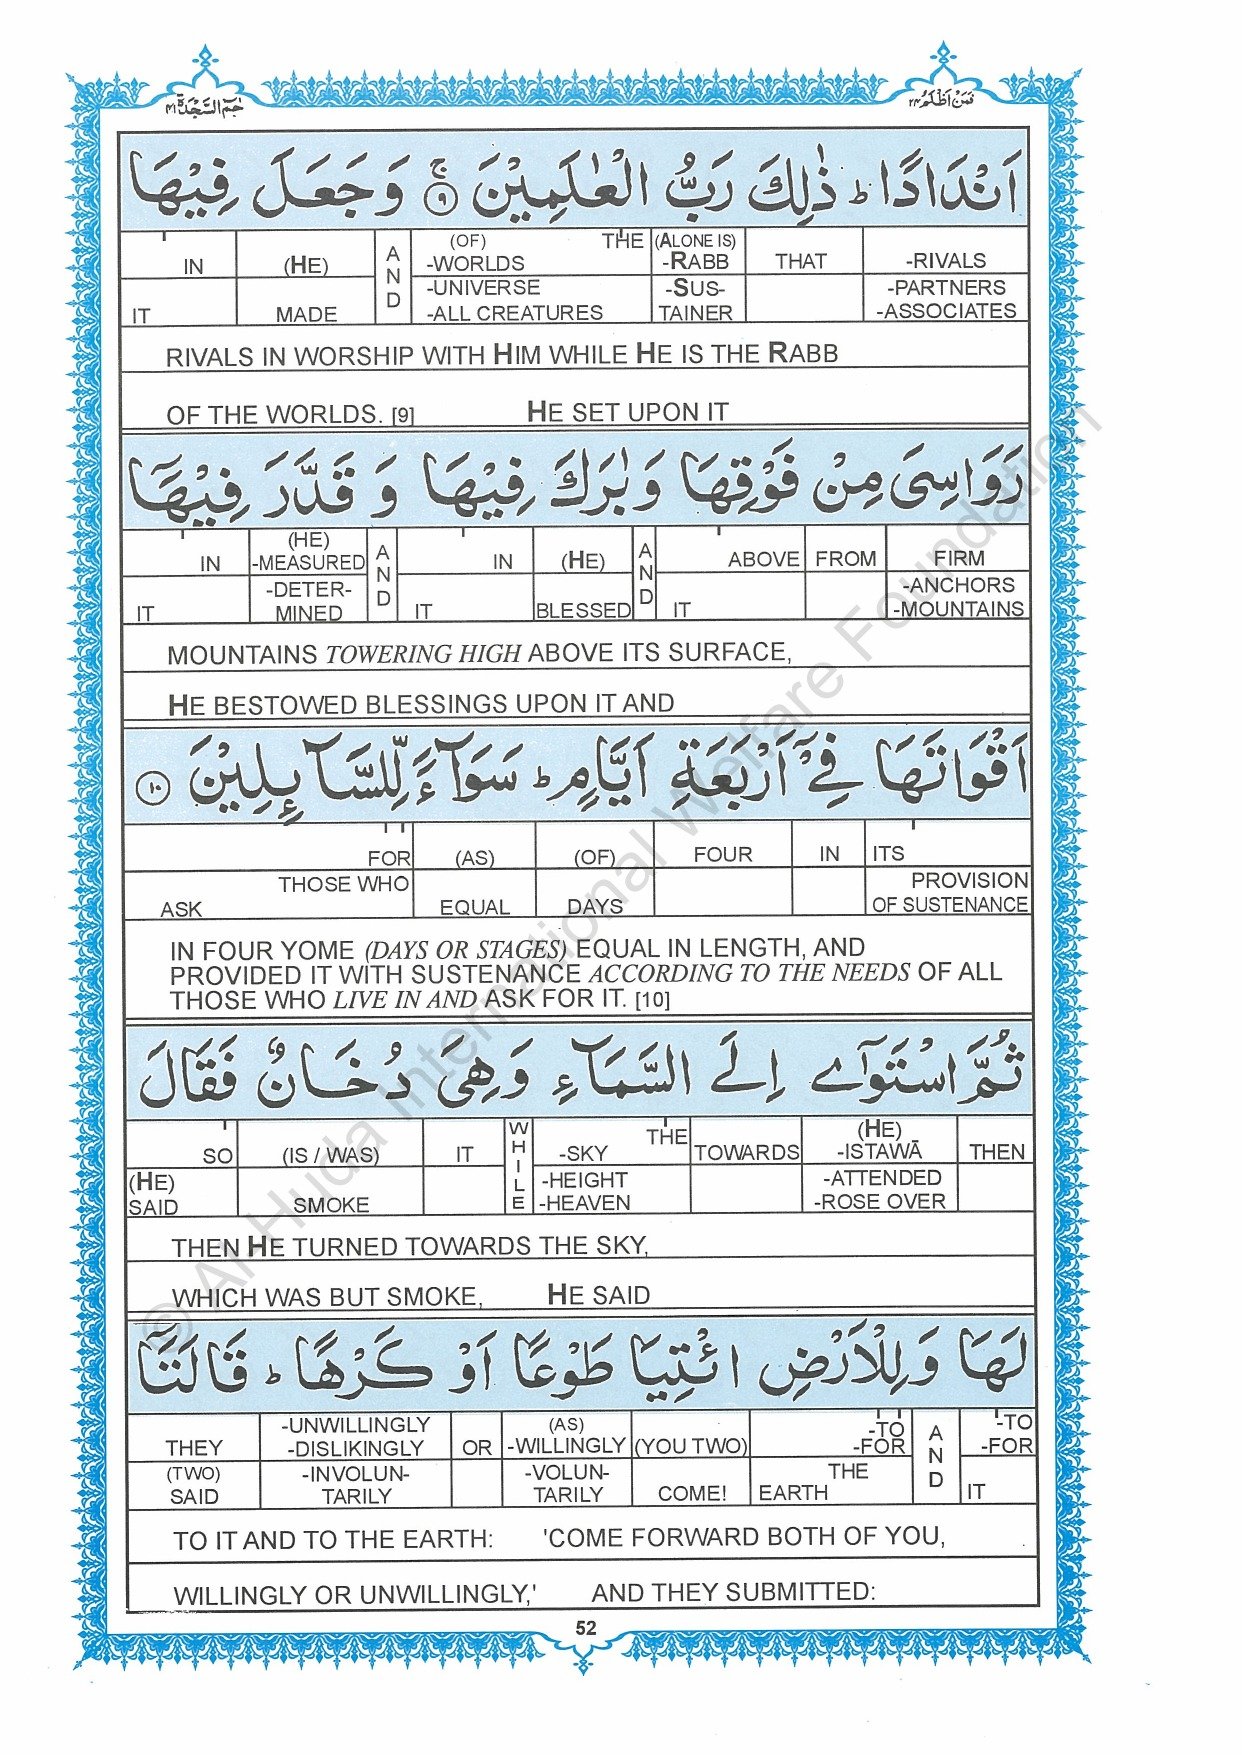 حٰمٓ السَّجْدَة ٤١
فَمَنْ اَظْلَمُ ٢٤
اَنْدَادًا ؕ ذٰلِكَ رَبُّ الْعٰلَمِيْنَ ۚ ٩ وَ جَعَلَ فِيْهَا
IN IT | (HE) MADE | AND | (OF) THE -WORLDS -UNIVERSE -ALL CREATURES | (ALONE IS) -RABB -SUS-TAINER | THAT | -RIVALS -PARTNERS -ASSOCIATES
RIVALS IN WORSHIP WITH HIM WHILE HE IS THE RABB
OF THE WORLDS. [9] HE SET UPON IT
رَوَاسِىَ مِنْ فَوْقِهَا وَ بٰرَكَ فِيْهَا وَ قَدَّرَ فِيْهَاۤ
IN IT | (HE) -MEASURED -DETER-MINED | AND | IN IT | (HE) BLESSED | AND | ABOVE IT | FROM | FIRM -ANCHORS -MOUNTAINS
MOUNTAINS TOWERING HIGH ABOVE ITS SURFACE,
HE BESTOWED BLESSINGS UPON IT AND
اَقْوَاتَهَا فِىْۤ اَرْبَعَةِ اَيَّامٍ ؕ سَوَآءً لِّلسَّآئِلِيْنَ ١٠
FOR THOSE WHO ASK | (AS) EQUAL | (OF) DAYS | FOUR | IN | ITS PROVISION OF SUSTENANCE
IN FOUR YOME (DAYS OR STAGES) EQUAL IN LENGTH, AND
PROVIDED IT WITH SUSTENANCE ACCORDING TO THE NEEDS OF ALL
THOSE WHO LIVE IN AND ASK FOR IT. [10]
ثُمَّ اسْتَوٰۤى اِلَى السَّمَآءِ وَ هِىَ دُخَانٌ فَقَالَ
SO (HE) SAID | (IS / WAS) SMOKE | IT | WHILE | THE -SKY -HEIGHT -HEAVEN | TOWARDS | (HE) -ISTAWĀ -ATTENDED -ROSE OVER | THEN
THEN HE TURNED TOWARDS THE SKY,
WHICH WAS BUT SMOKE, HE SAID
لَهَا وَ لِلْاَرْضِ ائْتِيَا طَوْعًا اَوْ كَرْهًا ؕ قَالَتَاۤ
THEY (TWO) SAID | -UNWILLINGLY -DISLIKINGLY -INVOLUN-TARILY | OR | (AS) -WILLINGLY -VOLUN-TARILY | (YOU TWO) COME! | -TO -FOR THE EARTH | AND | -TO -FOR IT
TO IT AND TO THE EARTH: 'COME FORWARD BOTH OF YOU,
WILLINGLY OR UNWILLINGLY,' AND THEY SUBMITTED:
52
© Al-Huda International Welfare Foundation